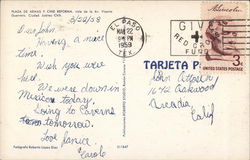 PLAZA DE ARMAS Y CINE REFORMA, vista de la Av. Vicente
Guerrero. Ciudad Juárez Chih.
3/22/58
Dear John
Having a nice
time. Wish you were
here.
We were down in
Mexico today.
Going to Caverns
tomorrow.
Love Janice
Carole
EL PASO
TEX
MAR 22
PM
1958
GIVE
RED CROSS
FUND
3¢
UNITED STATES POSTAGE
TARJETA
John
1642 Oakwood
Arcadia,
Calif
Fotografía Roberto López Díaz